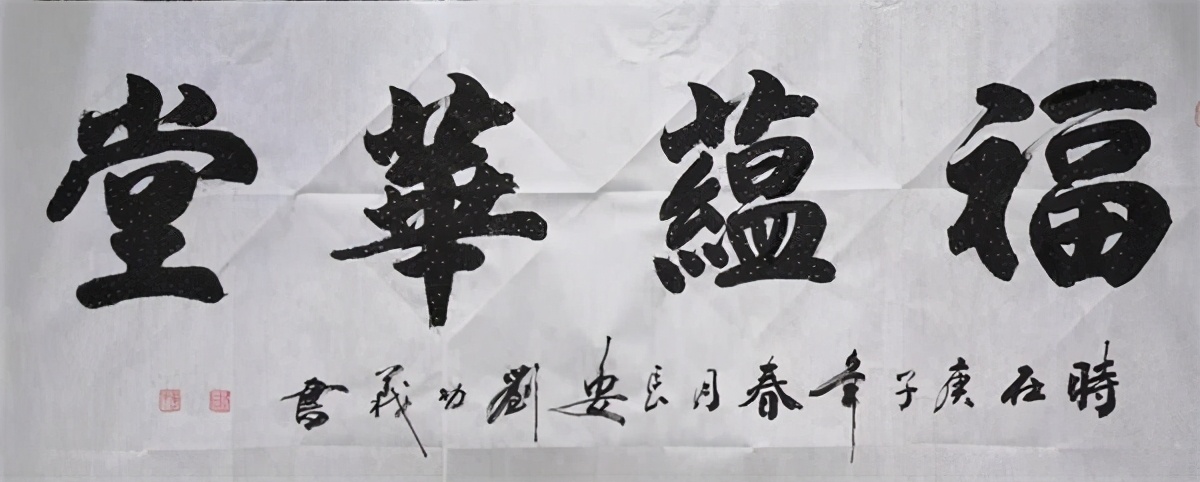 福蘊華堂
時在庚子年春月長安劉功義書